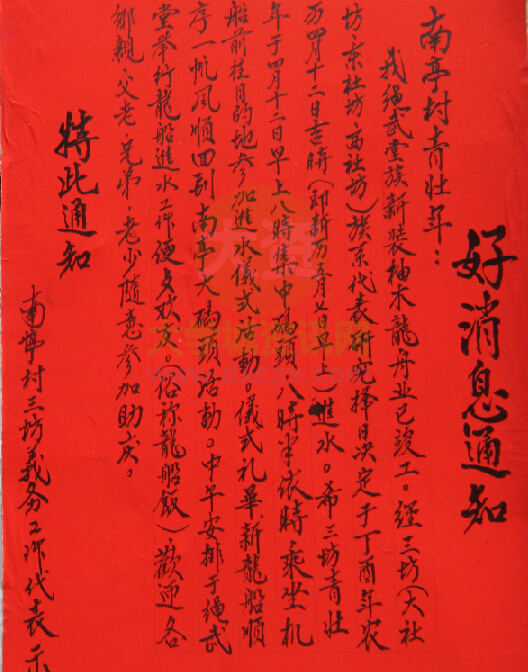 好消息通知
南亭村青壮年：
我绳武堂族新装柚木龙舟业已竣工。经三坊（大社
坊·东社坊·高社坊）族系代表研究择日决定于丁酉年农
历四月十二日吉時（即新历五月七日早上）進水。希三坊青壮
年于四月十二日早上八時集中碼頭八時半依時乘坐机
船前往目的地参加進水儀式活動。儀式礼畢新龍船順
序一帆风順回到南亭大碼頭活動。中午安排于绳武
堂举行龍船進水工作便文欢庆。（俗称龍船飯）歡迎各
鄉親·父老·兄弟·老少隨意参加助庆。
特此通知
南亭村三坊義务工作代表示